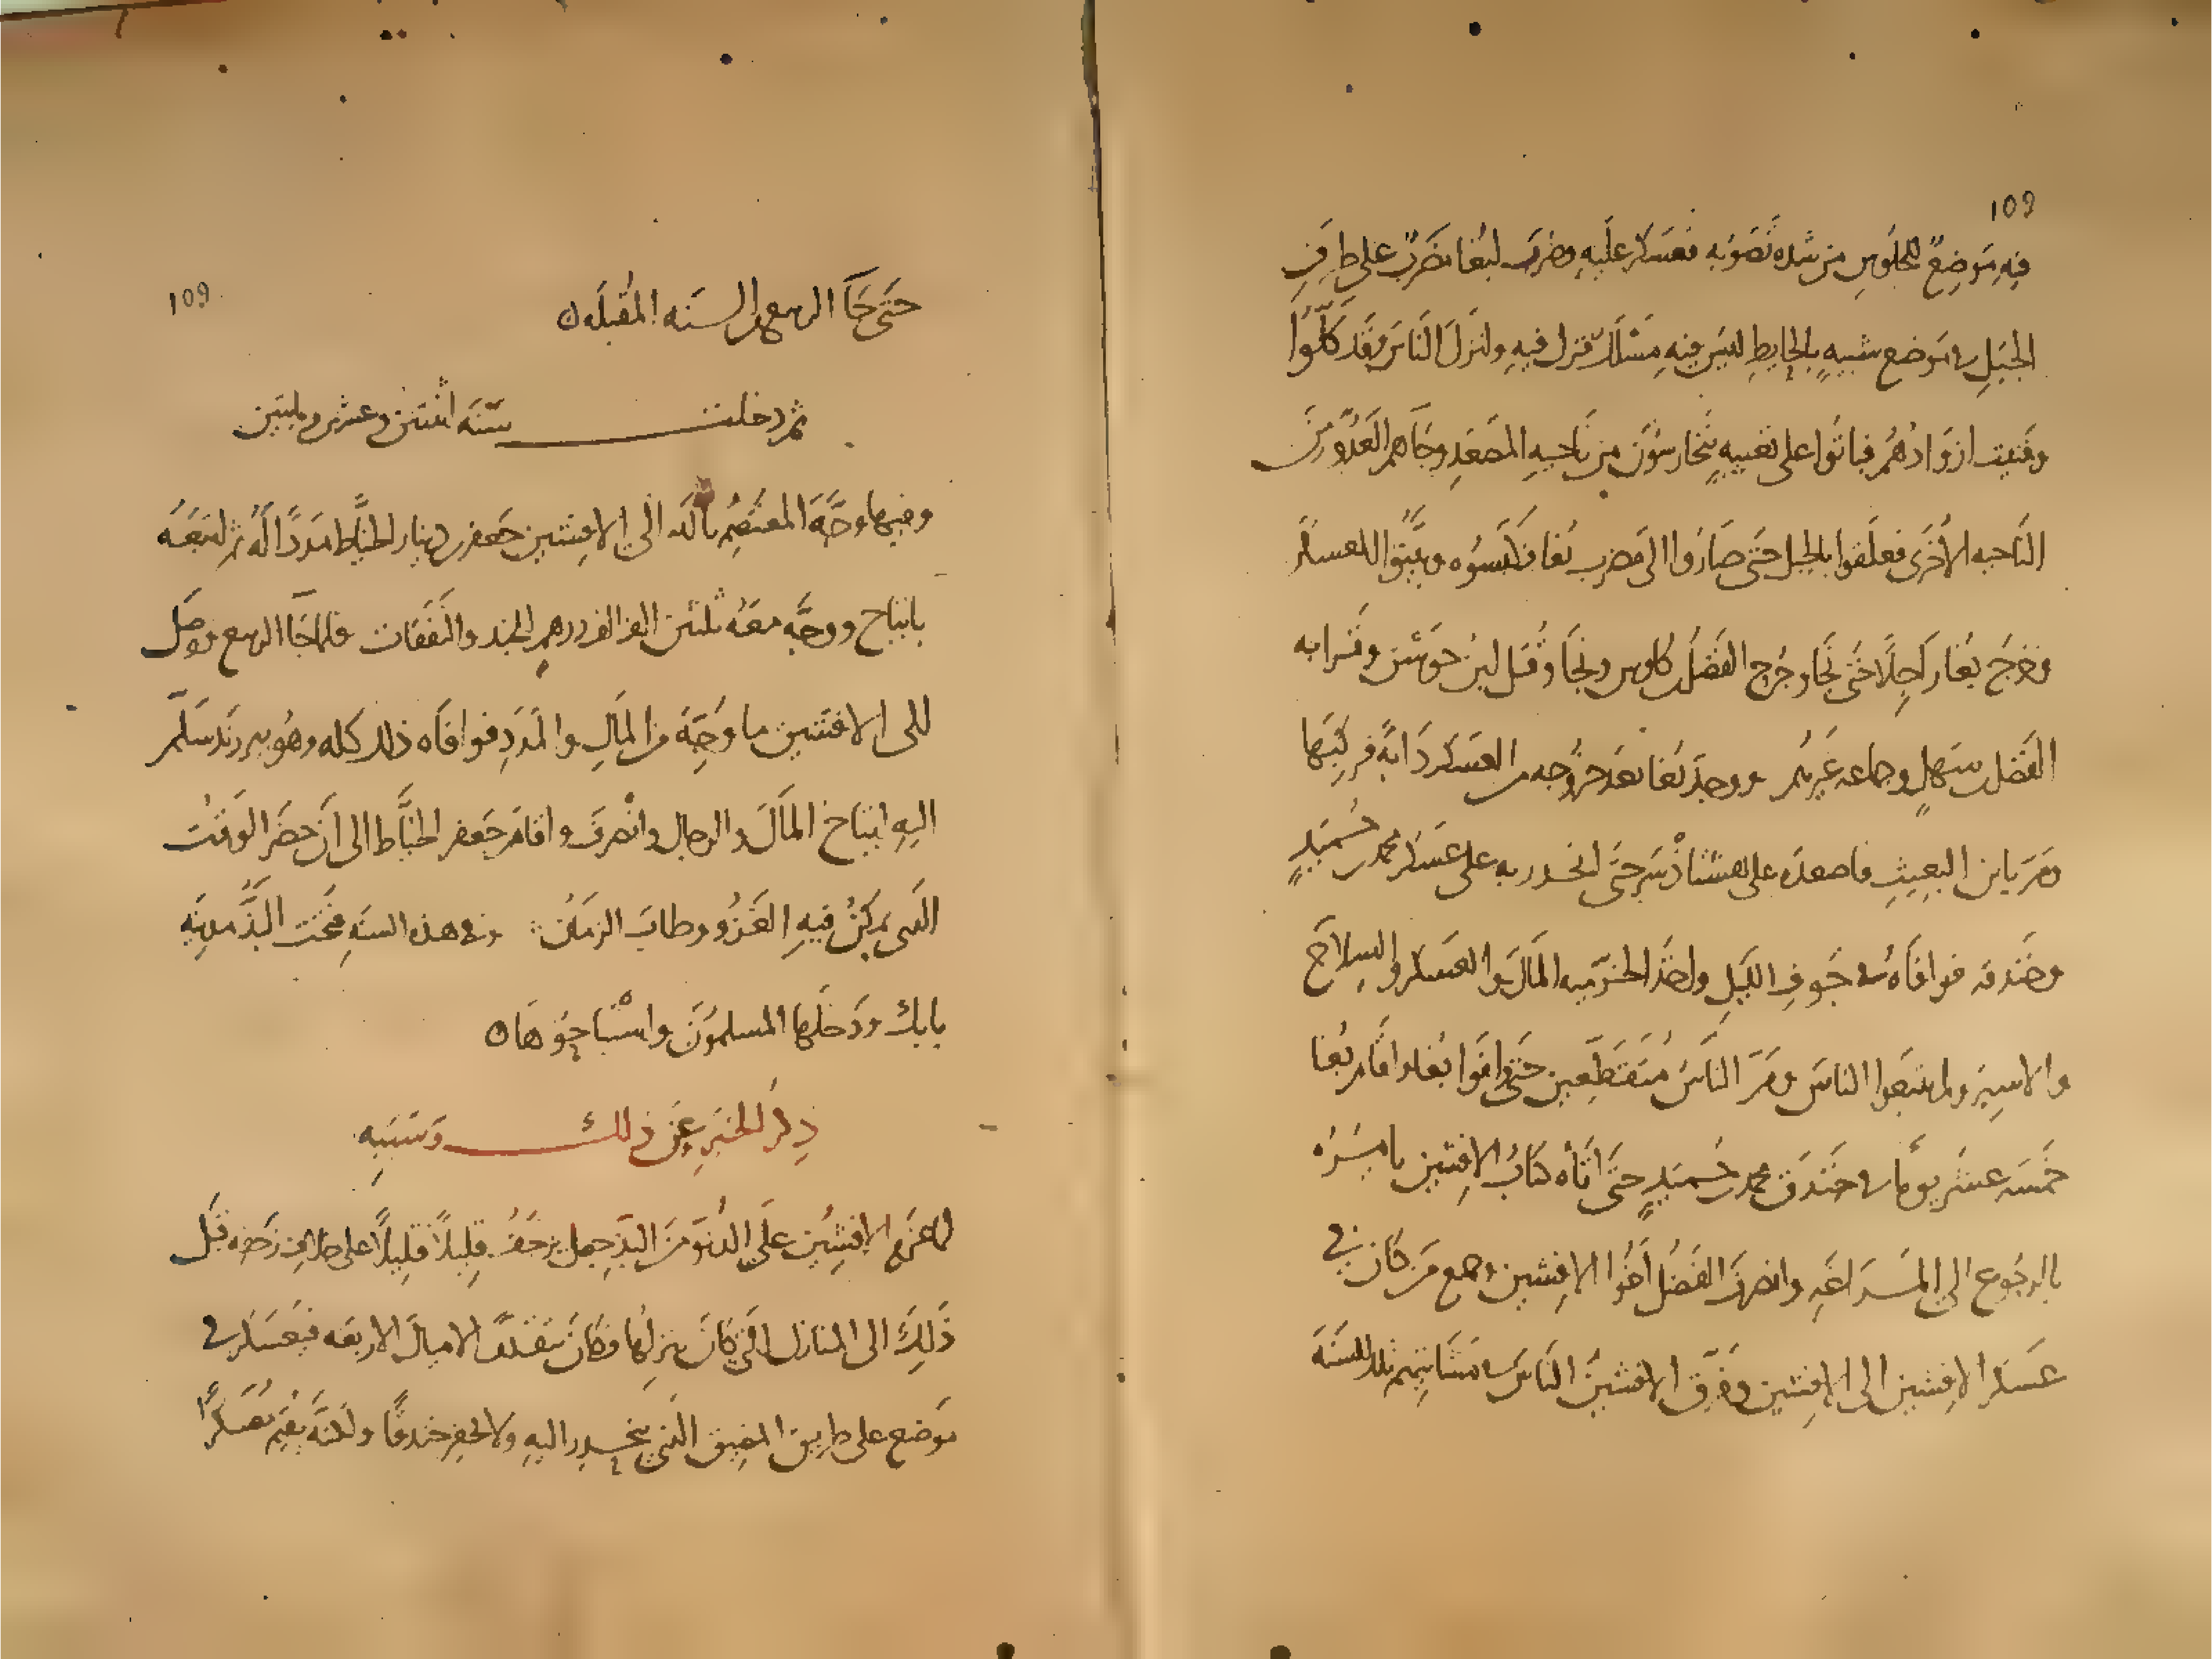 109
فيه موضعٌ للجلوس من شدة تصوبه فعسكر عليه وضرب لبغا مضرب على طرف
الجبل في موضع شبيه بالحايط ليس فيه مسلك فنزل فيه ونزل الناس وقد كلّوا
وفنيت ازوادهم فباتوا على تعبيه يتحارسون من ناحيه المصعد وجاهم العدو من
الناحيه الاخرى فعلقوا بالجبل حتى صاروا الى مضرب بغا فكبسوه وبيّتوا العسكر
وخرج بغا راجلا حتى نجا وخرج الفضل بن كاوس ونجا وقتل ابن جوشن وقرابه
الفضل بن سهل وجماعه غيرهم ووجد بغا بعد خروجه من العسكر دابه فركبها
ومر بابن البعيث فاصعده على هشتاذسر حتى انحدر به على عسكر محمد بن حميد
وخندقه فوافاه في جوف الليل واخذ الخرميه المال والعسكر والسلاح
والاسير ولم يتبعوا الناس ومر الناس متقطعين حتى وافوا بغا واقام بغا
خمسه عشر يوما في خندق محمد بن حميد حتى اتاه كتاب الافشين يامره
بالرجوع الى المراغه وانصرف الفضل اخوا الافشين وجمع من كان في
عسكر الافشين الى الافشين وفرق الافشين الناس في مشاتيهم تلك السنه
109
حتى جا الربيع من السنه المقبله
ثم دخلت سنه اثنتين وعشرين ومايتين
وفيها وجه المعتصم بالله الى الافشين جعفر بن دينار الخياط مددا له ثم اتبعه
بايتاخ ووجه معه ثلثين الف الف درهم للجند والنفقات فلما جا الربيع ووصل
الى الافشين ما وجه من المال والمدد فوافاه ذلك كله وهو ببرزند سلم
اليه ايتاخ المال والرجال وانصرف واقام جعفر الخياط الى ان حضر الوقت
الذي يمكن فيه الغزو وطاب الزمان وفي هذه السنه فتحت البذ مدينه
بابك ودخلها المسلمون واستباحوها
ذكر الخبر عن ذلك وسببه
لما عزم الافشين على الدنو من البذ جعل يزحف قليلا قليلا على خلاف زحفه قبل
ذلك الى المنازل التي كان ينزلها فكان يتقدم الاميال الاربعه فيعسكر في
موضع على طريق المضيق الذي ينحدر اليه ولا يحفر خندقا ولكنه يقيم معسكرا